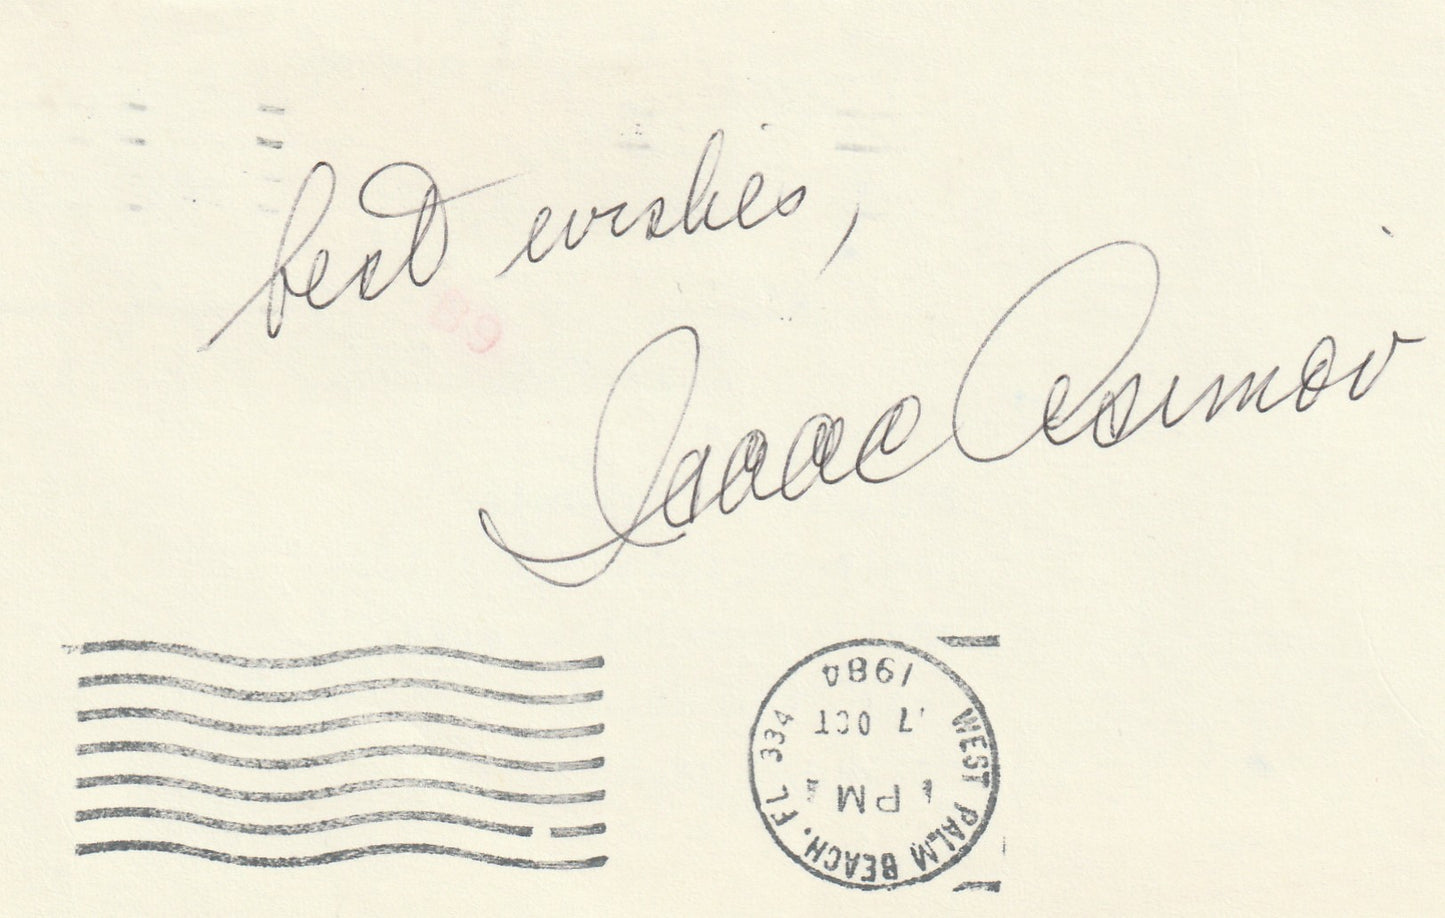 best wishes,
89
Isaac Asimov
1984
17 OCT
PM
WEST PALM BEACH, FL 334